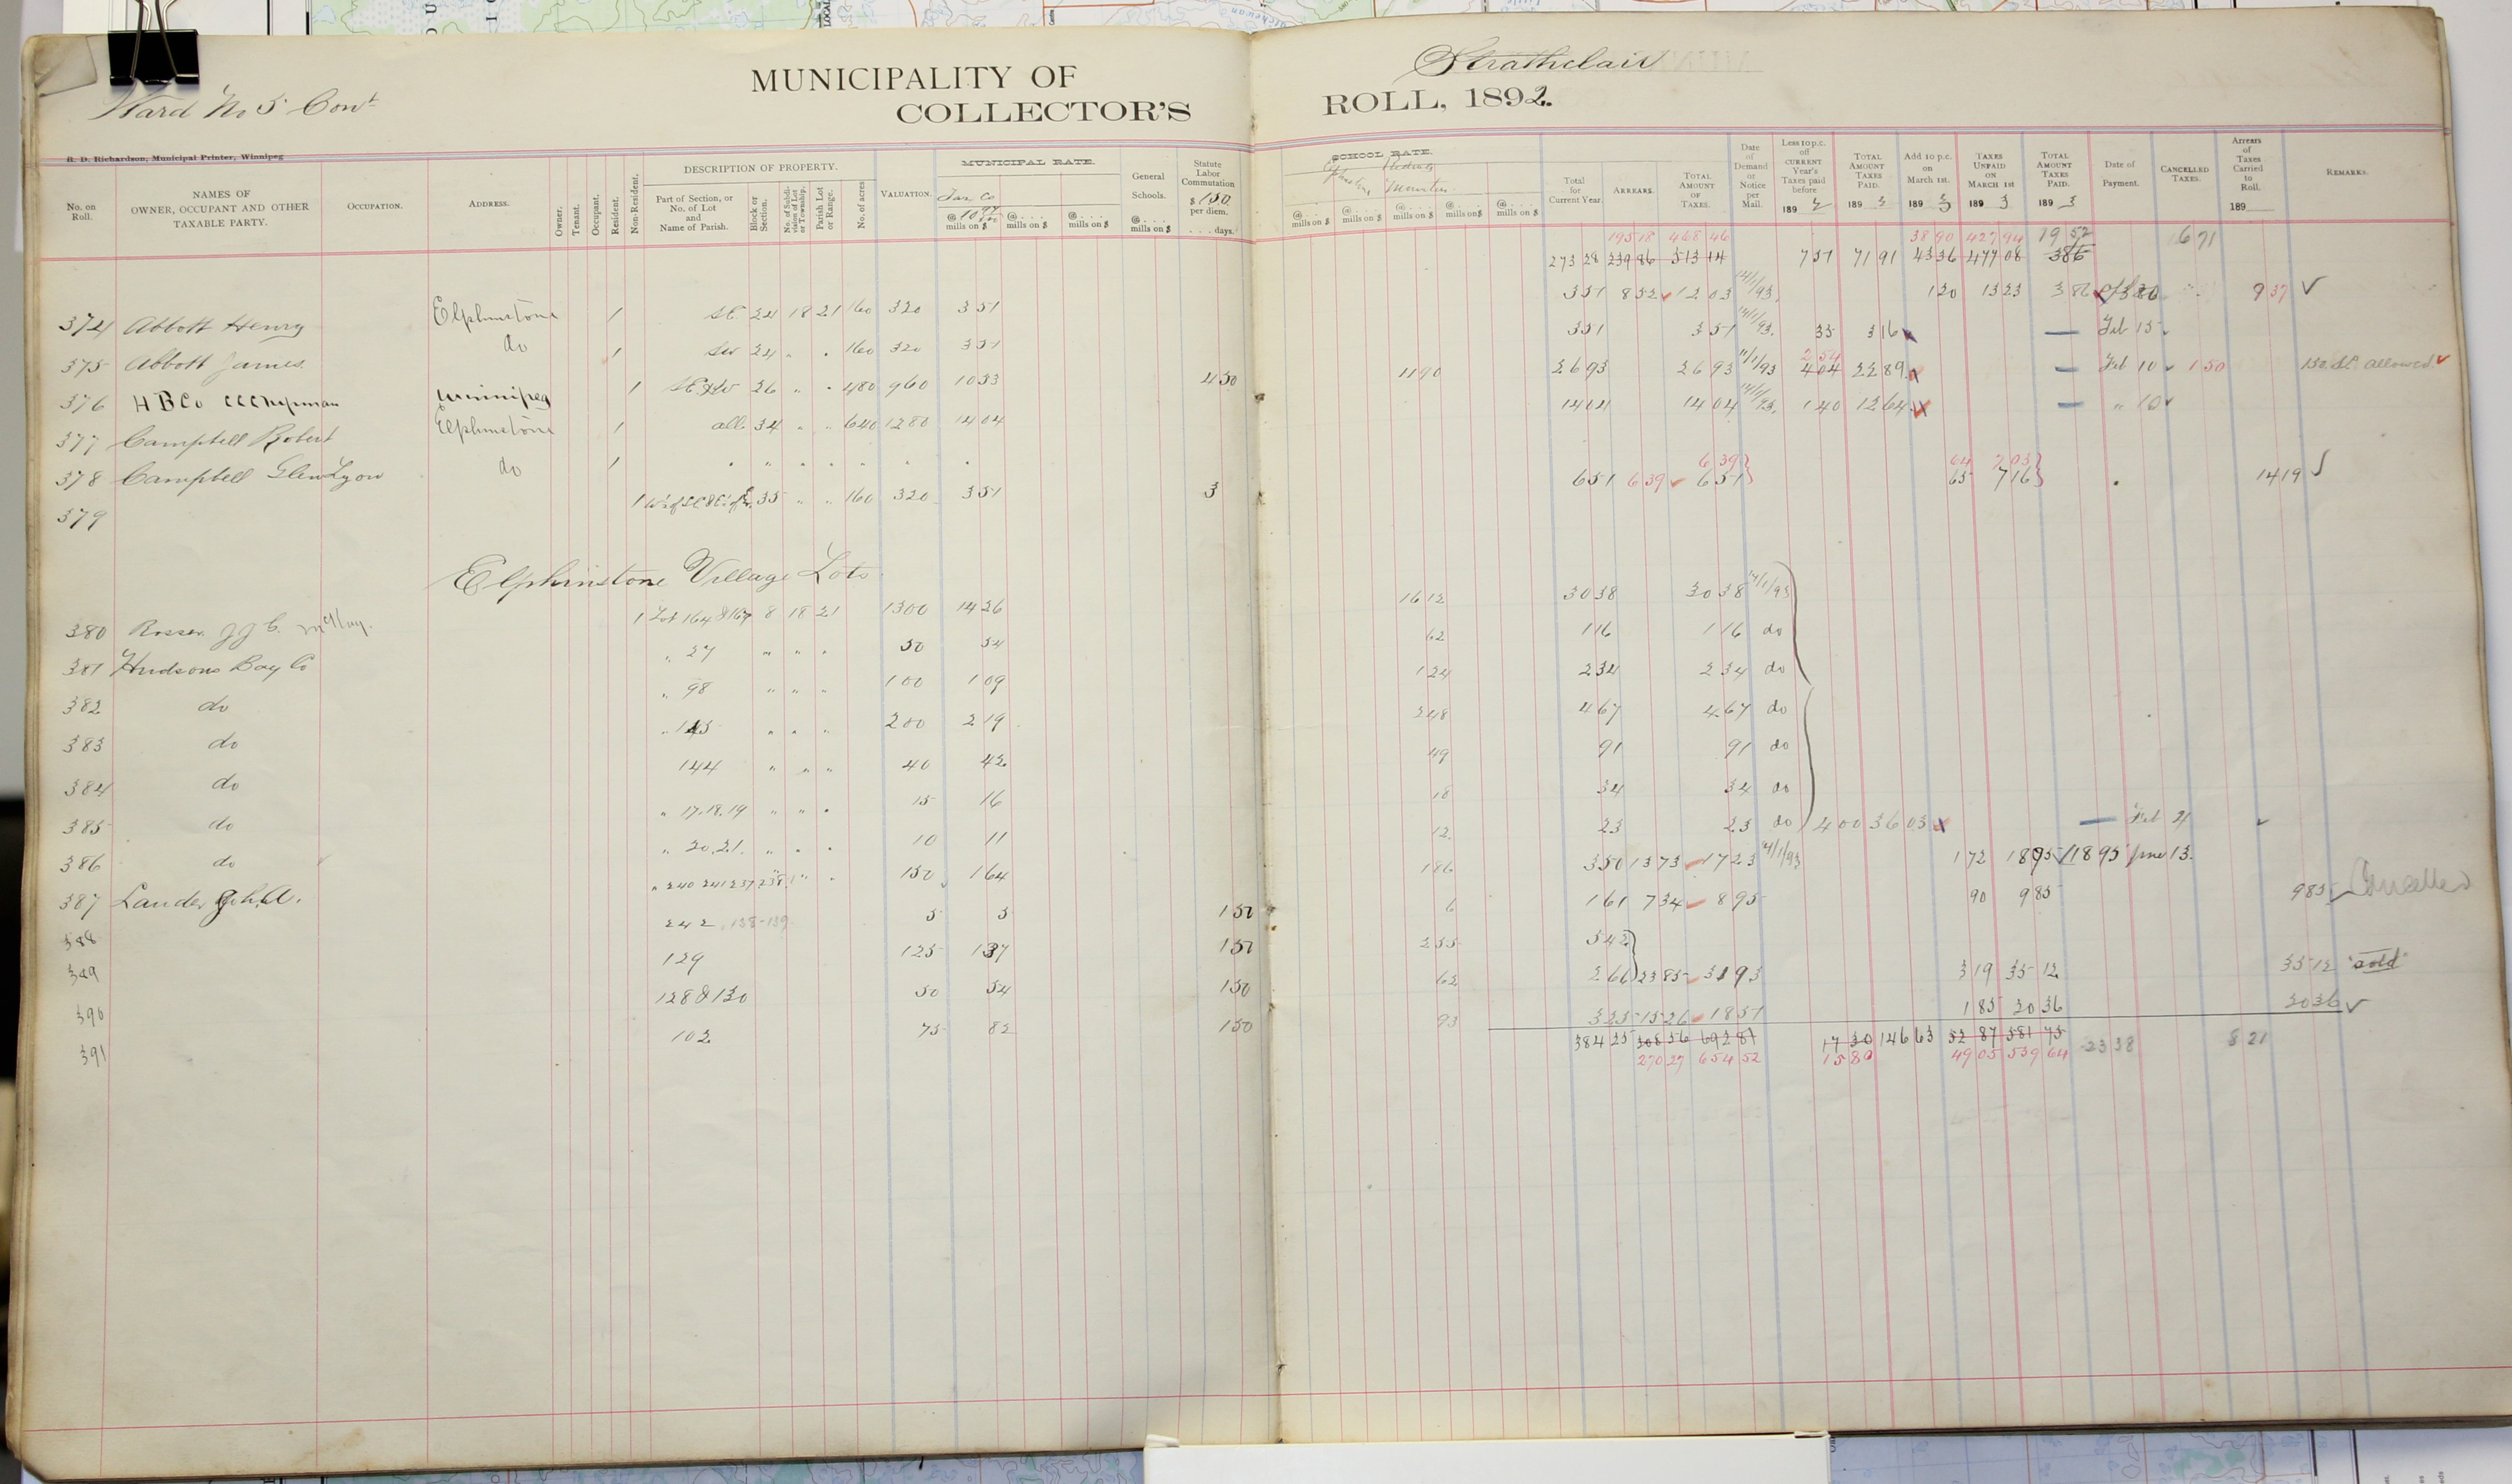 Ward No 5 Cont
MUNICIPALITY OF Strathclair
COLLECTOR'S ROLL, 1892.
R. D. Richardson, Municipal Printer, Winnipeg
No. on Roll. NAMES OF OWNER, OCCUPANT AND OTHER TAXABLE PARTY. OCCUPATION. ADDRESS. Owner. Tenant. Occupant. Resident. Non-Resident. DESCRIPTION OF PROPERTY. Part of Section, or No. of Lot and Name of Parish. Block or Section. No. of Subdivision of Lot or Township. Parish Lot or Range. No. of acres VALUATION. MUNICIPAL RATE. @ mills on $ @ . . . mills on $ @ . . . mills on $ General Schools. @ . . . mills on $ Statute Labor Commutation $ 1.50 per diem. . . . days.
SCHOOL RATE. @ . . . mills on $ @ . . . mills on $ @ . . . mills on $ @ . . . mills on $ @ . . . mills on $ Total for Current Year. ARREARS. TOTAL AMOUNT OF TAXES. Date of Demand or Notice per Mail. Less 10 p.c. off CURRENT Year's Taxes paid before 189 TOTAL AMOUNT TAXES PAID. 189 3 Add 10 p.c. on March 1st. 189 3 TAXES UNPAID ON MARCH 1st 189 3 TOTAL AMOUNT TAXES PAID. 189 3 Date of Payment. CANCELLED TAXES. Arrears of Taxes Carried to Roll. 189 REMARKS.
195 18 468 46 38 90 427 94 19 52 6 71
273 28 239 86 513 14 7 51 71 91 43 36 477 08 386
374 Abbott Henry Elphinstone 1 SE 24 18 21 160 320 3 51 3 51 8 52 12 03 14/1/93. 1 20 13 23 3 86 9 37 ✓
375 Abbott James do 1 SW 24 " " 160 320 3 51 3 51 3 51 14/1/93. 35 3 16 — Feb 15
376 H B Co Winnipeg 1 26 " " 480 960 10 53 4 50 11 90 26 93 26 93 11/1/93 2 54 4 04 22 89 — Feb 10 1 50 1 50 S.L. allowed ✓
377 Campbell Robert Elphinstone 1 all 34 " " 640 1280 14 04 14 04 14 04 14/1/93. 1 40 12 64 — " 10 ✓
378 Campbell Glen Lyon do 1 " " " " " " "
379 1 35 " " 160 320 3 51 3 6 51 6 39 6 39 6 51 64 7 03 65 7 16 14 19 ✓
Elphinstone Village Lots
380 Rosser J J C. McKay. 1 Lot 164 & 167 8 18 21 1300 14 26 16 12 30 38 30 38 14/1/93
381 Hudsons Bay Co " 27 " " " 50 54 62 1 16 1 16 do
382 do " 98 " " " 100 1 09 1 24 2 34 2 34 do
383 do " 145 " " " 200 2 19 2 48 4 67 4.67 do
384 do 144 " " " 40 42 49 91 91 do
385 do " 17.18.19 " " " 15 16 18 34 34 do
386 do " 20.21. " " " 10 11 12 23 23 do 4 00 36 03 — Feb 4 ✓
387 Lauder " 240 241 237 238 " " 150 1 64 1 86 3 50 13 73 17 23 14/1/93 1 72 18 95 ✓ 18 95 June 13.
388 242. 138-139 5 5 1 50 6 1 61 7 34 8 95 90 9 85 9 85 Cancelled
389 129 125 1 37 1 50 2 55 5 42
390 128 & 130 50 54 1 50 62 2 66 23 85 31 93 3 19 35 12 35 12 "sold"
391 102 75 82 1 50 93 3 25 15 26 18 51 1 85 20 36 20 36 ✓
384 25 308 56 692 81 17 30 146 63 52 87 581 75 23 38 8 21
270 27 654 52 15 80 49 05 539 64